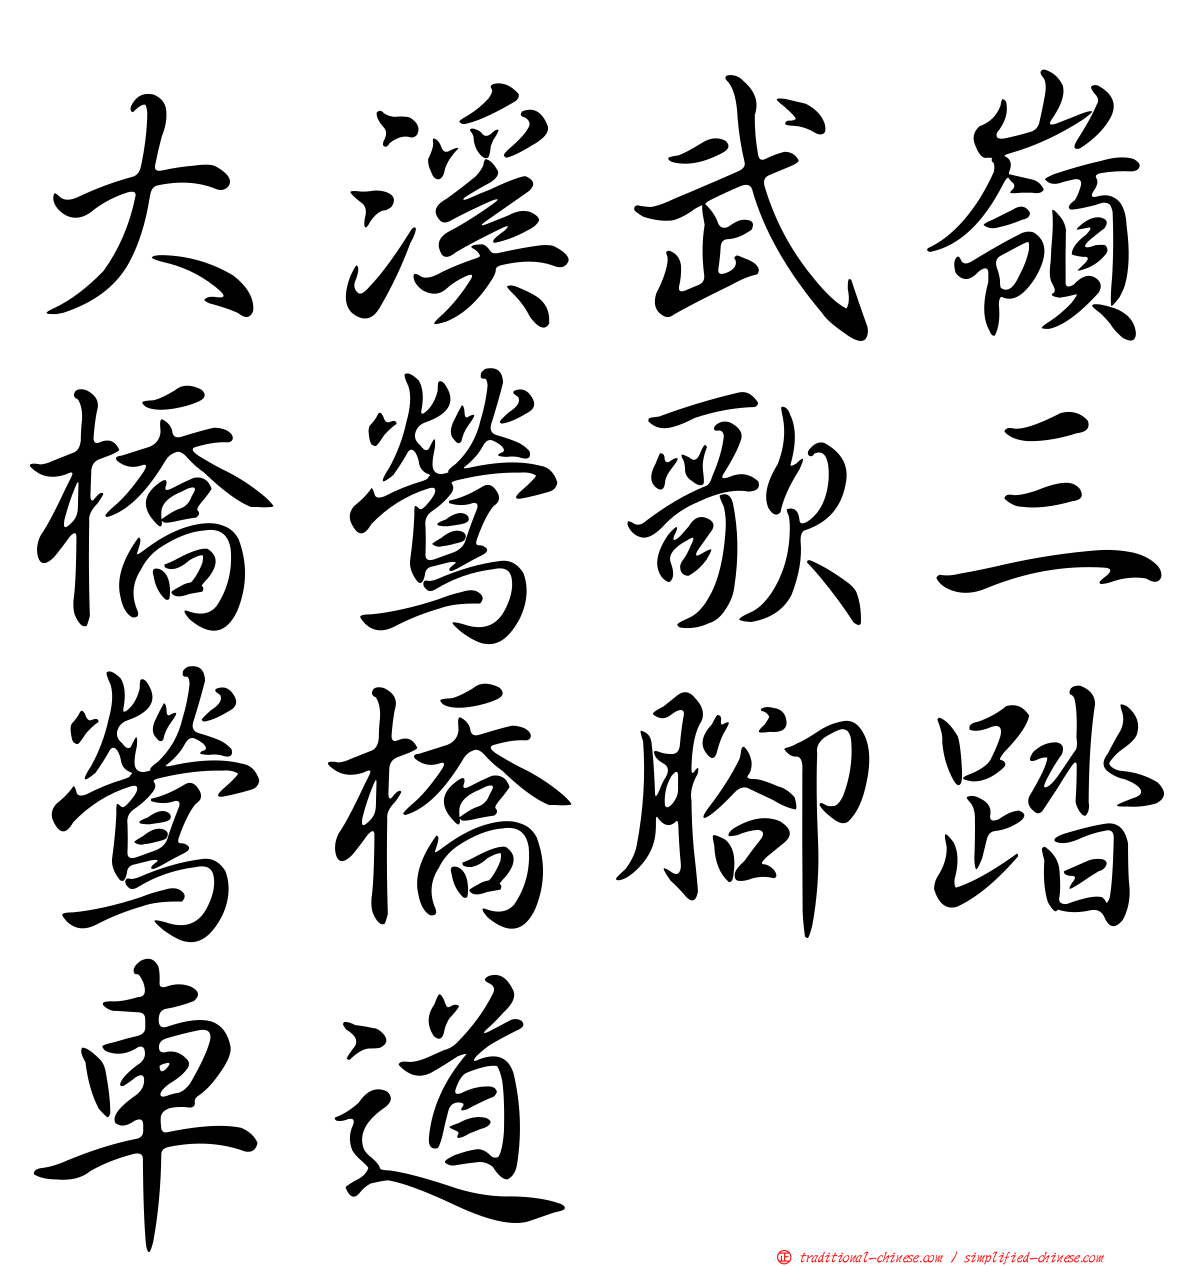 大溪武嶺
橋鶯歌三
鶯橋腳踏
車道
正 traditional-chinese.com / simplified-chinese.com